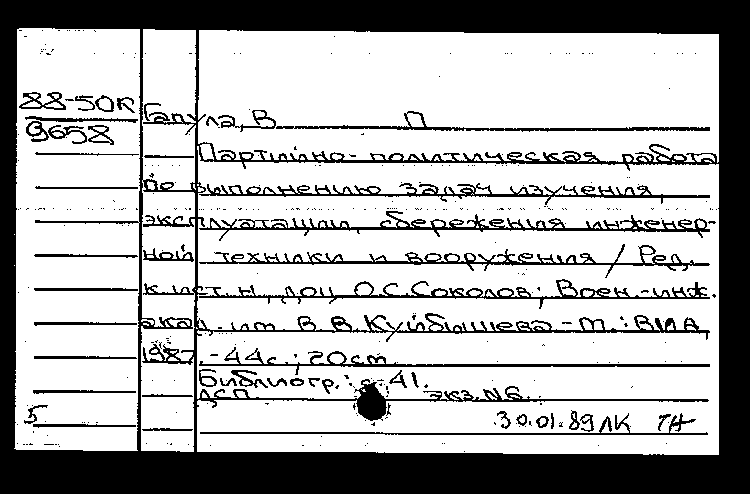 88-50к
9658
Гапула, В П
Партийно-политическая работа
по выполнению задач изучения,
эксплуатации, сбережения инженер-
ной техники и вооружения / Ред.
к.ист.н., доц О.С.Соколов; Воен.-инж.
акад. им. В.В.Куйбышева.-М.: ВИА,
1987.-44с.; 20см.
Библиогр.: с 41.
ДСП. экз.N6.
5 30.01.89ЛК ТН